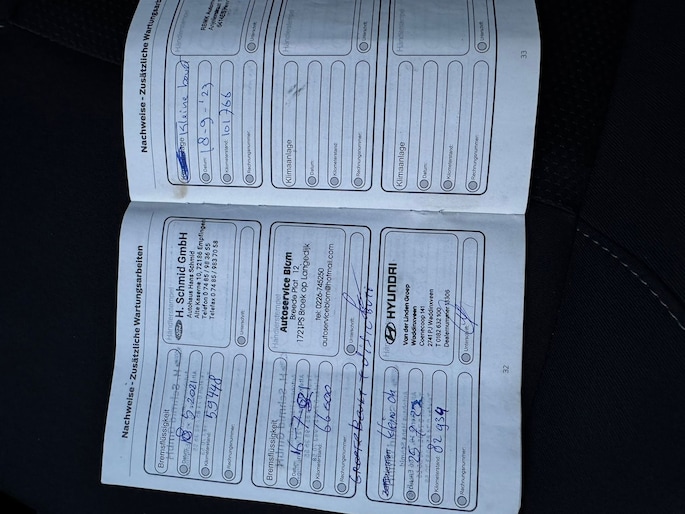 Nachweise - Zusätzliche Wartungsarbeiten
Bremsflüssigkeit
Datum 5.2021
Kilometerstand 59448
Rechnungsnummer
H. Schmid GmbH
Autohaus Hans Schmid
Alte Kaserne 10, 72186 Empfingen
Telefon 0 74 85 / 98 36 55
Telefax 0 74 85 / 983 70 58
Unterschrift
Bremsflüssigkeit
Datum
Kilometerstand 66000
Rechnungsnummer
Autoservice Blum
Breekland 12
1721PS Broek op Langedijk
tel: 0226-745250
autoserviceblum@hotmail.com
Unterschrift
Datum
Kilometerstand 82 934
Rechnungsnummer
HYUNDAI
Van der Linden Groep
Waddinxveen
Coenecoop 141
2741 PJ Waddinxveen
T 0182 632 900
Unterschrift
32
Nachweise - Zusätzliche Wartungsarbeiten
Kleine beurt
Datum 18-9-'23
Kilometerstand 101766
Rechnungsnummer
Unterschrift
Klimaanlage
Datum
Kilometerstand
Rechnungsnummer
Unterschrift
Klimaanlage
Datum
Kilometerstand
Rechnungsnummer
Unterschrift
33